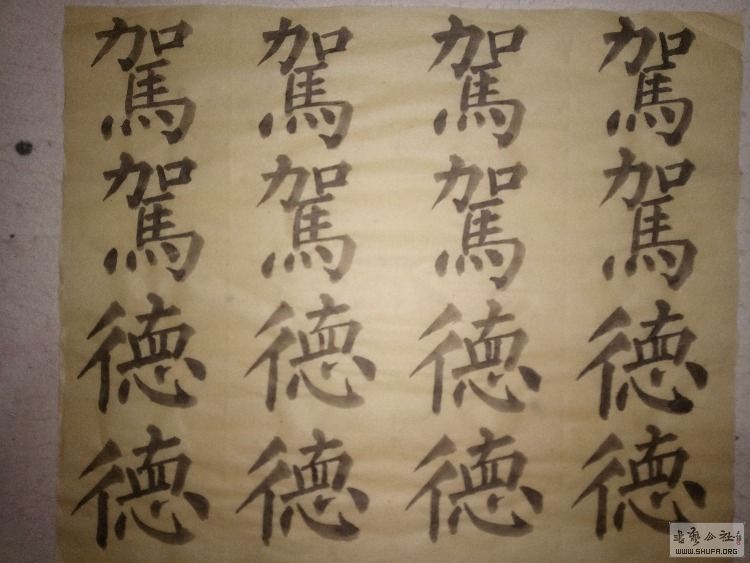 駕駕駕駕
駕駕駕駕
德德德德
德德德德
書藝公社
WWW.SHUFA.ORG